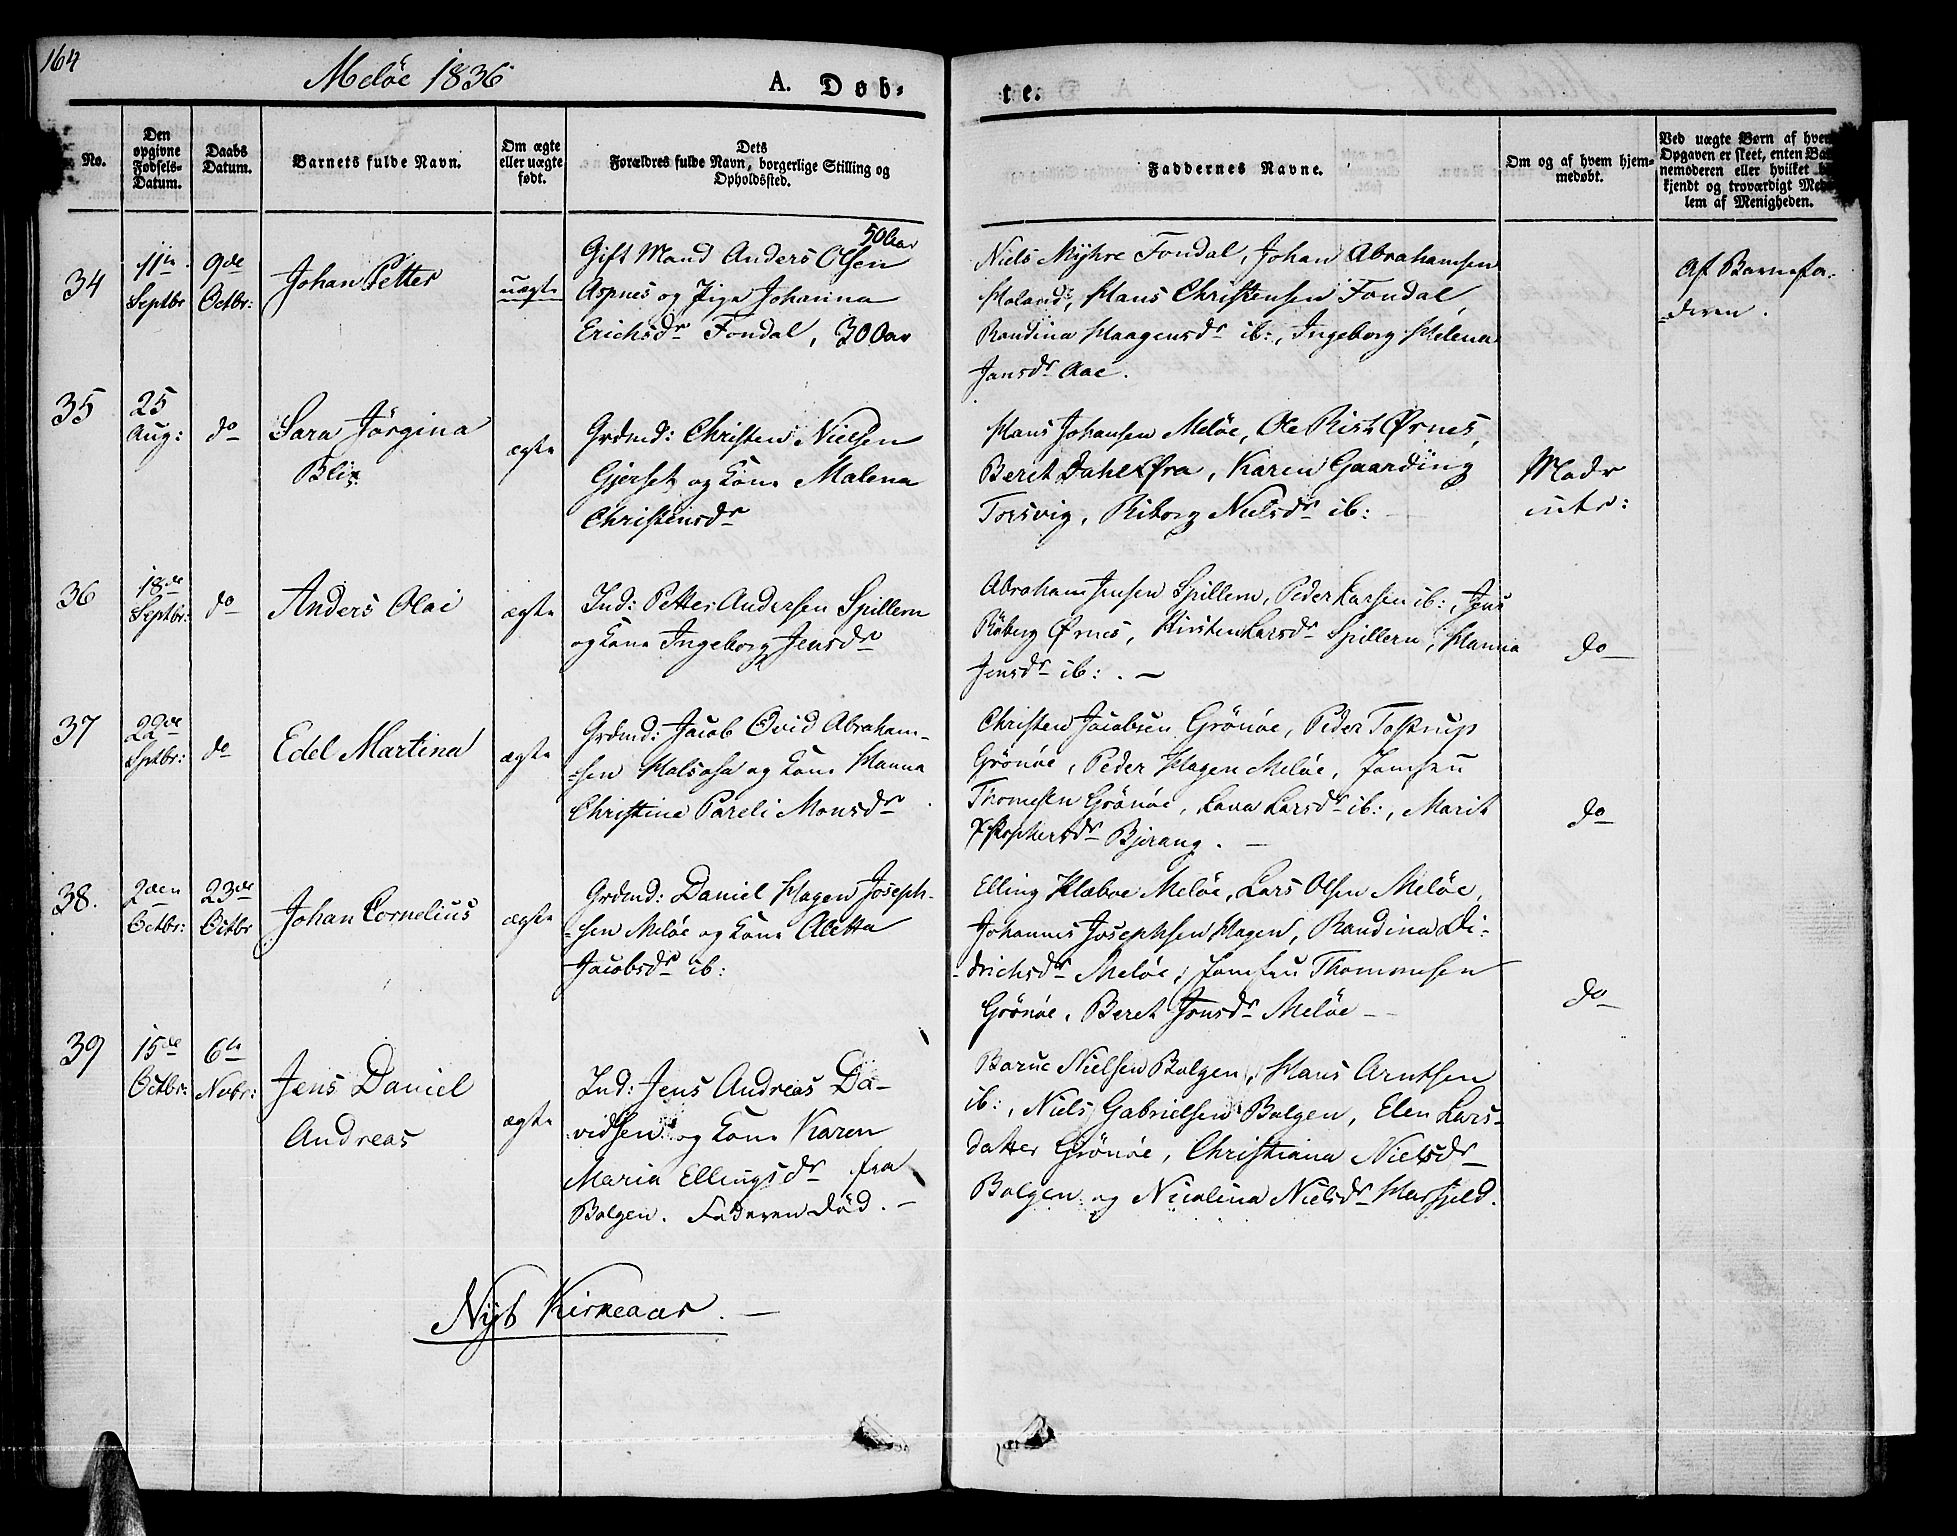 164
Meløe 1836
A. Døb-
te.
No.
Den opgivne Fødsels-Datum.
Daabs Datum.
Barnets fulde Navn.
Om ægte eller uægte født.
Dets Forældres fulde Navn, borgerlige Stilling og Opholdssted.
Faddernes Navne.
Om og af hvem hjem-
medøbt.
Ved uægte Børn af hvem
Opgaven er skeet, enten Bar-
nemoderen eller hvilket be-
kjendt og troværdigt Med-
lem af Menigheden.
34
11te Septbr
9de Octbr:
Johan Petter
uægte
50 Aar
Gift Mand Anders Olsen
Aspnes og Pige Johanna
Erichsdr Fondal, 30 Aar
Niels Myhre Fondal, Johan Abrahamsen
Haland, Hans Christensen Fondal,
Randina Haagensdr ib:, Ingeborg Helena
Jansdr Aae.
Af Barnefa-
deren.
35
25 Aug:
do
Sara Jørgina
Blix
ægte
Grdmd: Christen Nielsen
Gjerset og Kone Malena
Christensdr
Hans Johansen Meløe, Ole Rist Ørnes,
Beret Dahl Øra, Karen Gaarding
Torsvig, Riborg Nielsdr ib:
Modr
intr:
36
18de Septbr:
do
Anders Olai
ægte
Ind: Petter Andersen Spillern
og Kone Ingeborg Jensdr
Abraham Jensen Spillern, Peder Larsen ib:, Jens
Røberg Ørnes, Kirsten Larsdr Spillern, Hanna
Jensdr ib: . —
do
37
22de Sptbr:
do
Edel Martina
ægte
Grdmd: Jacob Ovid Abraham-
sen Halsosa og Kone Hanna
Christine Pareli Monsdr .
Christen Jacobsen Grønøe, Peder Tostrup
Grønøe, Peder Hagen Meløe, Jomfru
Thomesen Grønøe, Lava Larsdr ib:, Marit
Bjerang. —
do
38.
2den Octbr:
23de Octbr
Johan Cornelius
ægte
Grdmd: Daniel Hagen Joseph-
sen Meløe og Kone Aletta
Jacobsdr ib:
Elling Klæboe Meløe, Lars Olsen Meløe,
Johannes Josephsen Hagen, Randina Di-
drichsdr Meløe, Jomfru Thommesen
Grønøe, Beret Jonsdr Meløe —
do
39
15de Octbr:
6te Novbr:
Jens Daniel
Andreas
ægte
Ind: Jens Andreas Da-
vidsen og Kone Karen
Maria Ellingsdr fra
Bolgen. Faderen død. —
Baruc Nielsen Bolgen, Hans Arntsen
ib:, Niels Gabrielsen Bolgen, Elen Lars-
datter Grønøe, Christiana Nielsdr
Bolgen og Nicolina Nielsdr Havfjeld.
Nyt Kirkeaar. —